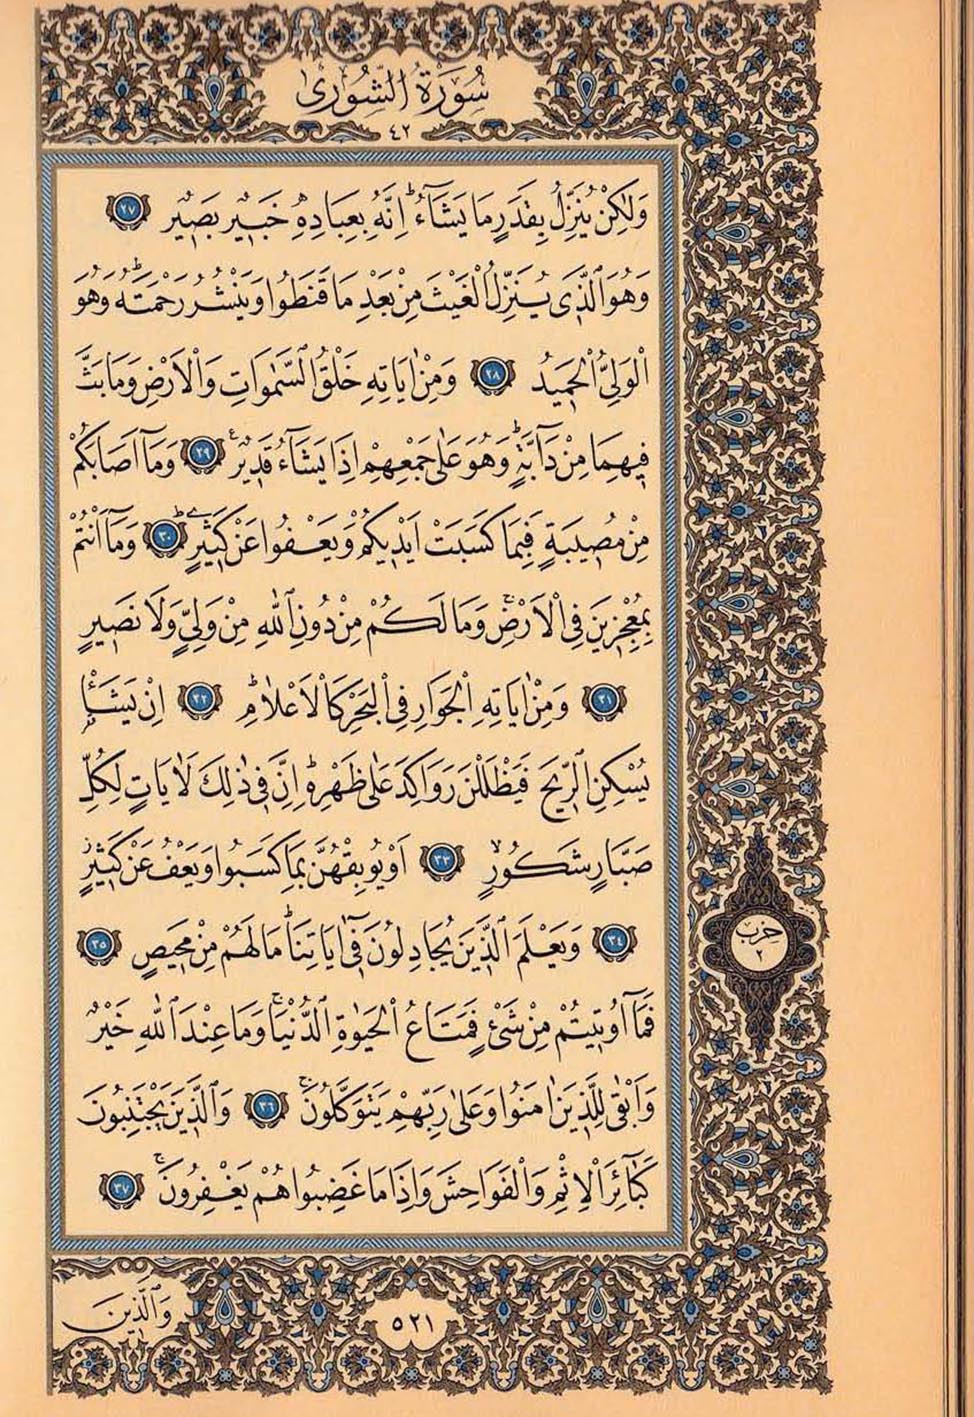 سُورَةُ الشُّورٰى
٤٢
وَلٰكِنْ يُنَزِّلُ بِقَدَرٍ مَا يَشَآءُۜ اِنَّهُ بِعِبَادِه۪ خَب۪يرٌ بَص۪يرٌ ٢٧
وَهُوَ الَّذ۪ي يُنَزِّلُ الْغَيْثَ مِنْ بَعْدِ مَا قَنَطُوا وَيَنْشُرُ رَحْمَتَهُۜ وَهُوَ
الْوَلِيُّ الْحَم۪يدُ ٢٨ وَمِنْ اٰيَاتِه۪ خَلْقُ السَّمٰوَاتِ وَالْاَرْضِ وَمَا بَثَّ
ف۪يهِمَا مِنْ دَآبَّةٍۜ وَهُوَ عَلٰى جَمْعِهِمْ اِذَا يَشَآءُ قَد۪يرٌ۟ ٢٩ وَمَآ اَصَابَكُمْ
مِنْ مُص۪يبَةٍ فَبِمَا كَسَبَتْ اَيْد۪يكُمْ وَيَعْفُوا عَنْ كَث۪يرٍۜ ٣٠ وَمَآ اَنْتُمْ
بِمُعْجِز۪ينَ فِي الْاَرْضِۚ وَمَا لَكُمْ مِنْ دُونِ اللّٰهِ مِنْ وَلِيٍّ وَلَا نَص۪يرٍ
٣١ وَمِنْ اٰيَاتِهِ الْجَوَارِ فِي الْبَحْرِ كَالْاَعْلَامِۜ ٣٢ اِنْ يَشَأْ
يُسْكِنِ الرّ۪يحَ فَيَظْلَلْنَ رَوَاكِدَ عَلٰى ظَهْرِه۪ۜ اِنَّ ف۪ي ذٰلِكَ لَاٰيَاتٍ لِكُلِّ
صَبَّارٍ شَكُورٍۙ ٣٣ اَوْ يُوبِقْهُنَّ بِمَا كَسَبُوا وَيَعْفُ عَنْ كَث۪يرٍۘ
٣٤ وَيَعْلَمَ الَّذ۪ينَ يُجَادِلُونَ ف۪ٓي اٰيَاتِنَاۜ مَا لَهُمْ مِنْ مَح۪يصٍ ٣٥
فَمَآ اُو۫ت۪يتُمْ مِنْ شَيْءٍ فَمَتَاعُ الْحَيٰوةِ الدُّنْيَاۚ وَمَا عِنْدَ اللّٰهِ خَيْرٌ
وَاَبْقٰى لِلَّذ۪ينَ اٰمَنُوا وَعَلٰى رَبِّهِمْ يَتَوَكَّلُونَۚ ٣٦ وَالَّذ۪ينَ يَجْتَنِبُونَ
كَبَآئِرَ الْاِثْمِ وَالْفَوَاحِشَ وَاِذَا مَا غَضِبُوا هُمْ يَغْفِرُونَۚ ٣٧
حِزْب
٢
وَالَّذ۪ينَ
٥٢١